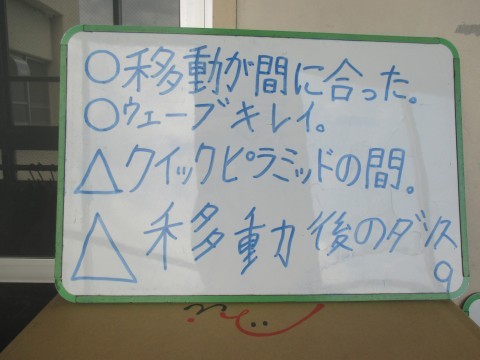 ○移動が間に合った。
○ウェーブキレイ。
△クイックピラミッドの間。
△移動後のダンス
9